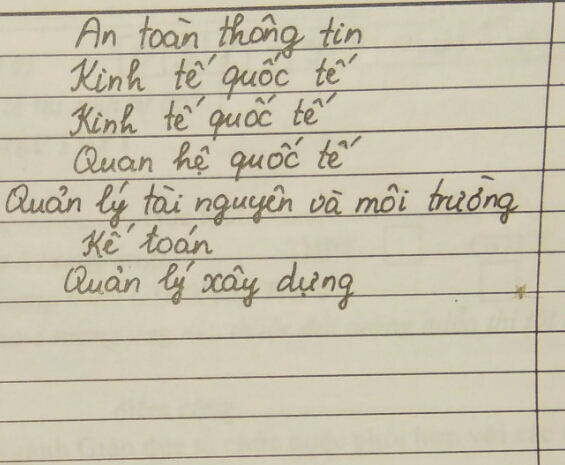 An toàn thông tin
Kinh tế quốc tế
Kinh tế quốc tế
Quan hệ quốc tế
Quản lý tài nguyên và môi trường
Kế toán
Quản lý xây dựng